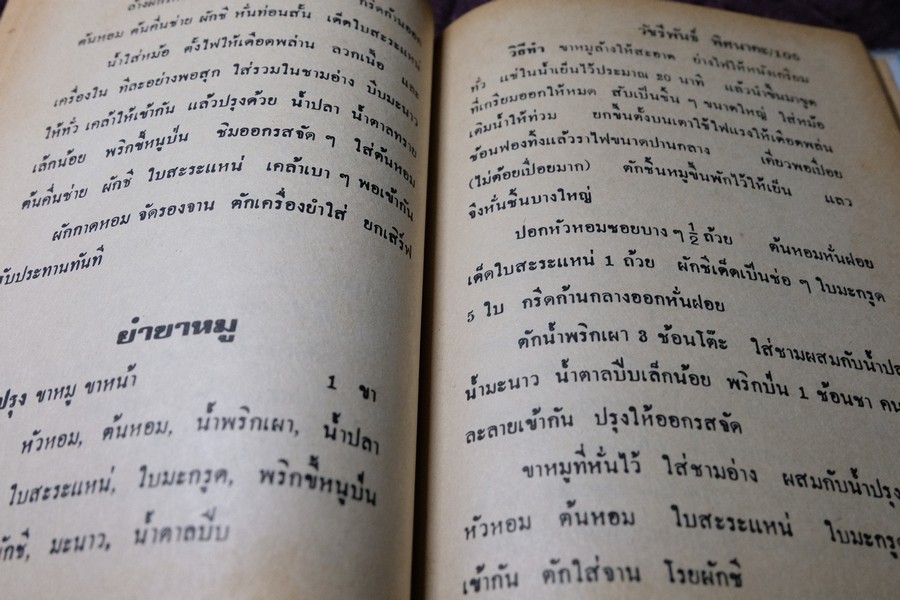 กรีดก้านออก
ต้นหอม ต้นคื่นช่าย ผักชี หั่นท่อนสั้น เด็ดใบสะระแหน่
น้ำใส่หม้อ ตั้งไฟให้เดือดพล่าน ลวกเนื้อ และ
เครื่องใน ทีละอย่างพอสุก ใส่รวมในชามอ่าง บีบมะนาว
ให้ทั่ว เคล้าให้เข้ากัน แล้วปรุงด้วย น้ำปลา น้ำตาลทราย
เล็กน้อย พริกขี้หนูป่น ชิมออกรสจัด ๆ ใส่ต้นหอม
ต้นคื่นช่าย ผักชี ใบสะระแหน่ เคล้าเบา ๆ พอเข้ากัน
ผักกาดหอม จัดรองจาน ตักเครื่องยำใส่ ยกเสิร์ฟ
รับประทานทันที
ยำยาหมู
ปรุง ขาหมู ขาหน้า 1 ขา
หัวหอม, ต้นหอม, น้ำพริกเผา, น้ำปลา
ใบสะระแหน่, ใบมะกรูด, พริกขี้หนูป่น
ผักชี, มะนาว, น้ำตาลปีบ
วัชรีพันธ์ พิศนาคะ/106
วิธีทำ ขาหมูล้างให้สะอาด ย่างไฟให้หนังเกรียม
ทั่ว แช่ในน้ำเย็นไว้ประมาณ 20 นาที แล้วนำขึ้นมาขูด
ที่เกรียมออกให้หมด สับเป็นชิ้น ๆ ขนาดใหญ่ ใส่หม้อ
เติมน้ำให้ท่วม ยกขึ้นตั้งบนเตาใช้ไฟแรงให้เดือดพล่น
ช้อนฟองทิ้งแล้วราไฟขนาดปานกลาง เคี่ยวพอเปื่อย
(ไม่ต้อยเปื่อยมาก) ตักชิ้นหมูขึ้นพักไว้ให้เย็น แลว
จึงหั่นชิ้นบางใหญ่
ปอกหัวหอมซอยบาง ๆ ½ ถ้วย ต้นหอมหั่นฝอย
เด็ดใบสะระแหน่ 1 ถ้วย ผักชีเด็ดเป็นช่อ ๆ ใบมะกรูด
5 ใบ กรีดก้านกลางออกหั่นฝอย
ตักน้ำพริกเผา 3 ช้อนโต๊ะ ใส่ชามผสมกับน้ำปลา
น้ำมะนาว น้ำตาลปีบเล็กน้อย พริกป่น 1 ช้อนชา คน
ละลายเข้ากัน ปรุงให้ออกรสจัด
ขาหมูที่หั่นไว้ ใส่ชามอ่าง ผสมกับน้ำปรุง
หัวหอม ต้นหอม ใบสะระแหน่ ใบมะกรูด
เข้ากัน ตักใส่จาน โรยผักชี